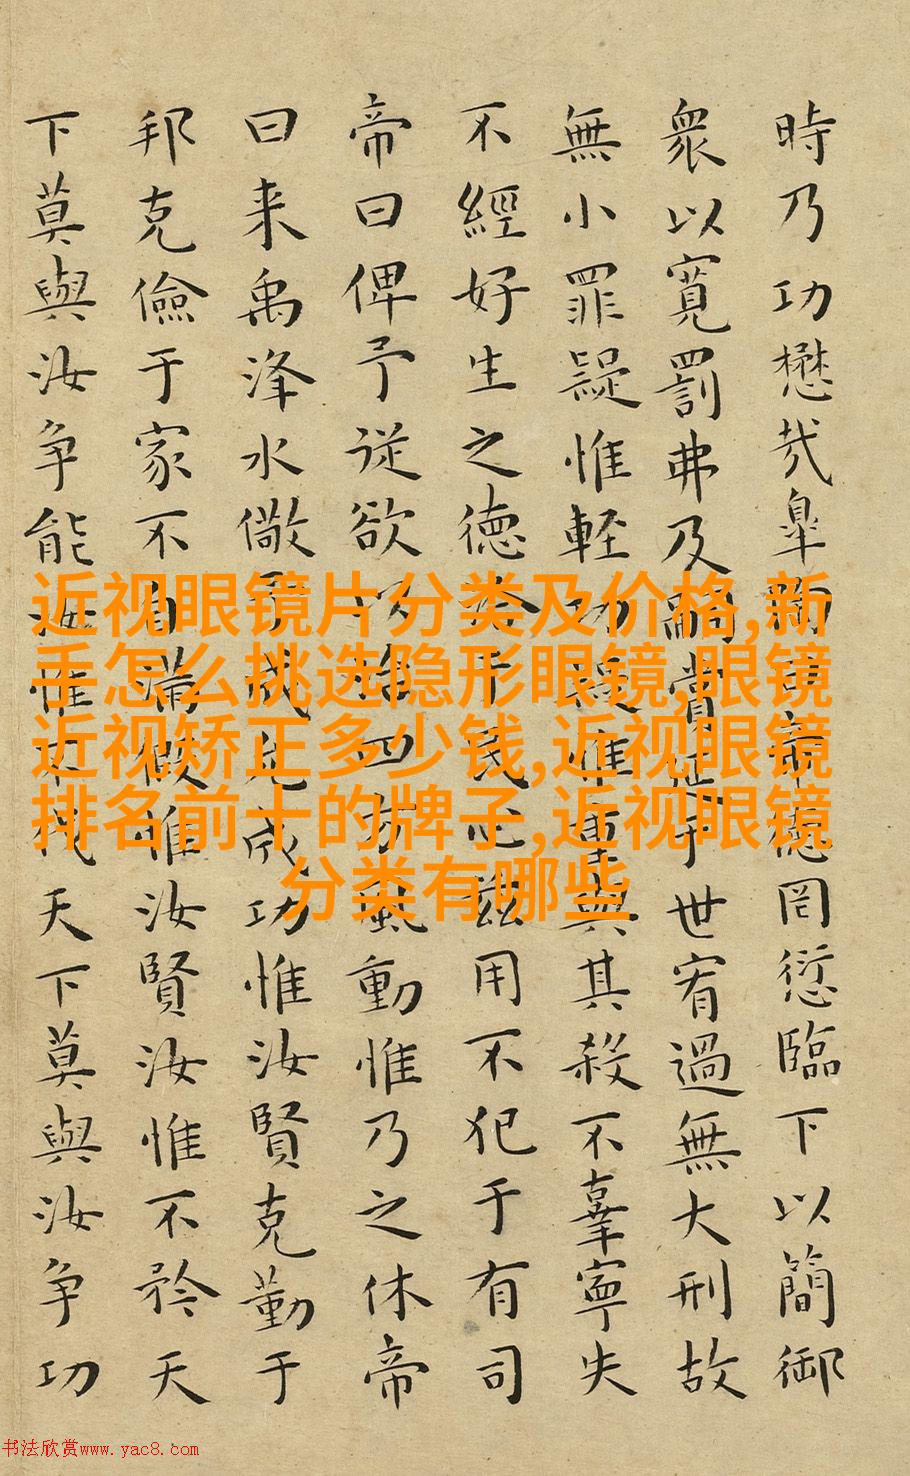 時乃功懋哉皐陶曰帝德罔愆臨下以簡御
衆以寛罰弗及嗣賞延于世宥過無大刑故
無小罪疑惟輕功疑惟重與其殺不辜寧失
不經好生之德洽于民心茲用不犯于有司
帝曰俾予從欲以治四方風動惟乃之休帝
曰来禹洚水儆予成允成功惟汝賢克勤于
邦克儉于家不自滿假惟汝賢汝惟不矜天
下莫與汝争能汝惟不伐天下莫與汝争功
近视眼镜片分类及价格,新
手怎么挑选隐形眼镜,眼镜
近视矫正多少钱,近视眼镜
排名前十的牌子,近视眼镜
分类有哪些
书法欣赏www.yac8.com